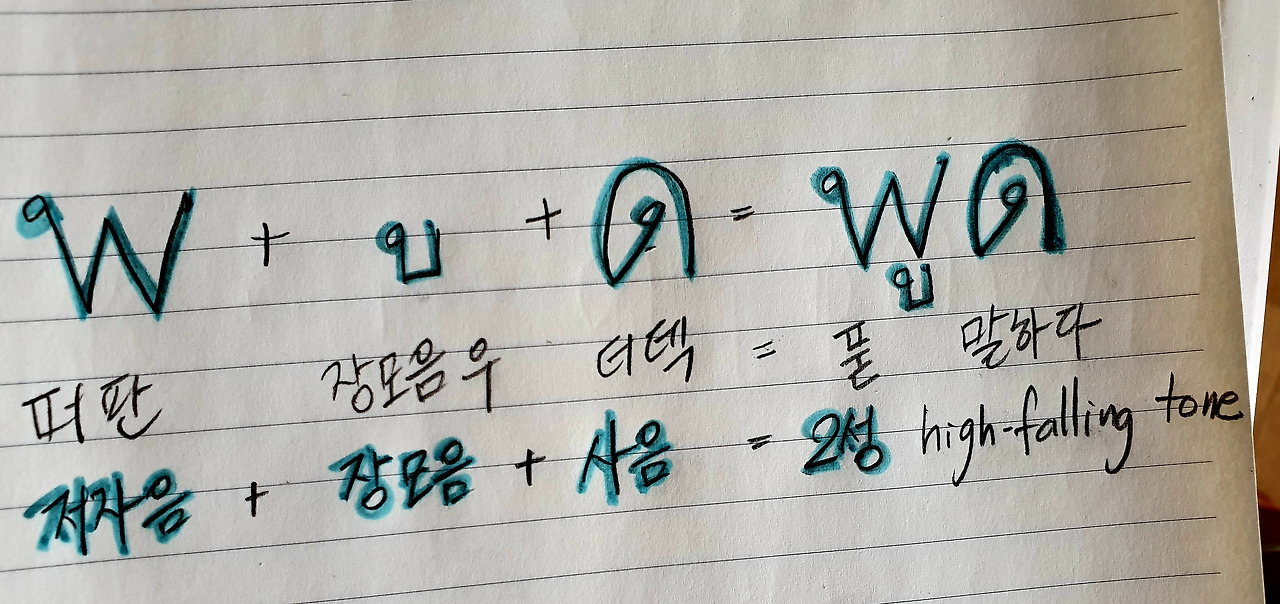 พ + ู + ด = พูด
퍼판 장모음 우 더덱 = 푿 말하다
저자음 + 장모음 + 사음 = 2성 high-falling tone